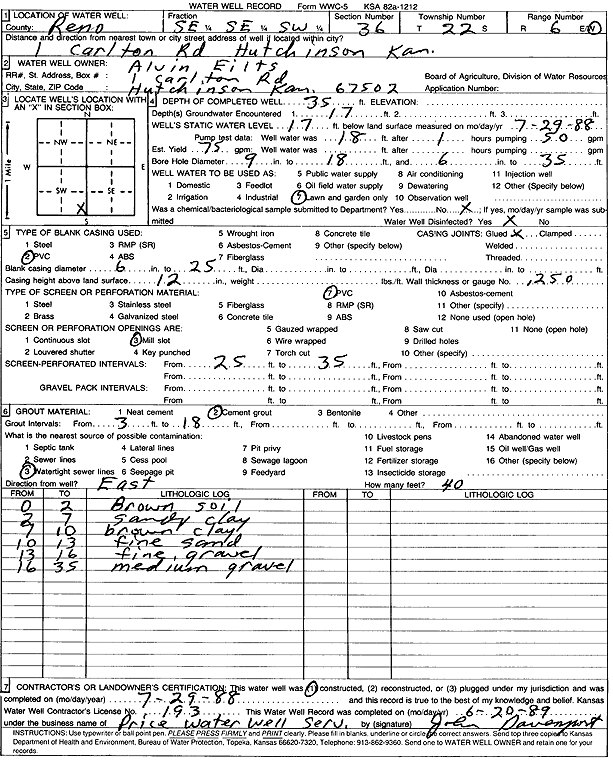 WATER WELL RECORD Form WWC-5 KSA 82a-1212
1 LOCATION OF WATER WELL: Fraction Section Number Township Number Range Number
County: Reno SE ¼ SE ¼ SW ¼ 36 T 22 S R 6 E/W
Distance and direction from nearest town or city street address of well if located within city?
1 Carlton Rd Hutchinson Kan.
2 WATER WELL OWNER: Alvin Eilts
RR#, St. Address, Box # : 1 Carlton Rd Board of Agriculture, Division of Water Resources
City, State, ZIP Code : Hutchinson Kan. 67502 Application Number:
3 LOCATE WELL'S LOCATION WITH AN "X" IN SECTION BOX:
N
NW NE
W E
SW SE
X
S
1 Mile
4 DEPTH OF COMPLETED WELL 35 ft. ELEVATION:
Depth(s) Groundwater Encountered 1. 17 ft. 2. ft. 3. ft.
WELL'S STATIC WATER LEVEL 17 ft. below land surface measured on mo/day/yr 7-29-88
Pump test data: Well water was 18 ft. after 1 hours pumping 50 gpm
Est. Yield 75 gpm: Well water was ft. after hours pumping gpm
Bore Hole Diameter 9 in. to 18 ft., and 6 in. to 35 ft.
WELL WATER TO BE USED AS: 5 Public water supply 8 Air conditioning 11 Injection well
1 Domestic 3 Feedlot 6 Oil field water supply 9 Dewatering 12 Other (Specify below)
2 Irrigation 4 Industrial 7 Lawn and garden only 10 Observation well
Was a chemical/bacteriological sample submitted to Department? Yes No X ; If yes, mo/day/yr sample was submitted
Water Well Disinfected? Yes X No
5 TYPE OF BLANK CASING USED: 5 Wrought iron 8 Concrete tile CASING JOINTS: Glued X Clamped
1 Steel 3 RMP (SR) 6 Asbestos-Cement 9 Other (specify below) Welded
2 PVC 4 ABS 7 Fiberglass Threaded
Blank casing diameter 6 in. to 25 ft., Dia in. to ft., Dia in. to ft.
Casing height above land surface 12 in., weight lbs./ft. Wall thickness or gauge No. .250
TYPE OF SCREEN OR PERFORATION MATERIAL: 7 PVC 10 Asbestos-cement
1 Steel 3 Stainless steel 5 Fiberglass 8 RMP (SR) 11 Other (specify)
2 Brass 4 Galvanized steel 6 Concrete tile 9 ABS 12 None used (open hole)
SCREEN OR PERFORATION OPENINGS ARE: 5 Gauzed wrapped 8 Saw cut 11 None (open hole)
1 Continuous slot 3 Mill slot 6 Wire wrapped 9 Drilled holes
2 Louvered shutter 4 Key punched 7 Torch cut 10 Other (specify)
SCREEN-PERFORATED INTERVALS: From 25 ft. to 35 ft., From ft. to ft.
From ft. to ft., From ft. to ft.
GRAVEL PACK INTERVALS: From ft. to ft., From ft. to ft.
From ft. to ft., From ft. to ft.
6 GROUT MATERIAL: 1 Neat cement 2 Cement grout 3 Bentonite 4 Other
Grout Intervals: From 3 ft. to 18 ft., From ft. to ft., From ft. to ft.
What is the nearest source of possible contamination: 10 Livestock pens 14 Abandoned water well
1 Septic tank 4 Lateral lines 7 Pit privy 11 Fuel storage 15 Oil well/Gas well
2 Sewer lines 5 Cess pool 8 Sewage lagoon 12 Fertilizer storage 16 Other (specify below)
3 Watertight sewer lines 6 Seepage pit 9 Feedyard 13 Insecticide storage
Direction from well? East How many feet? 40
FROM TO LITHOLOGIC LOG FROM TO LITHOLOGIC LOG
0 2 Brown soil
2 7 sandy clay
7 10 brown clay
10 13 fine sand
13 16 fine gravel
16 35 medium gravel
7 CONTRACTOR'S OR LANDOWNER'S CERTIFICATION: This water well was (1) constructed, (2) reconstructed, or (3) plugged under my jurisdiction and was
completed on (mo/day/year) 7-29-88 and this record is true to the best of my knowledge and belief. Kansas
Water Well Contractor's License No. 193 This Water Well Record was completed on (mo/day/yr) 6-20-89
under the business name of Price Water Well Serv. by (signature) John Davenport
INSTRUCTIONS: Use typewriter or ball point pen. PLEASE PRESS FIRMLY and PRINT clearly. Please fill in blanks, underline or circle the correct answers. Send top three copies to Kansas
Department of Health and Environment, Bureau of Water Protection, Topeka, Kansas 66620-7320, Telephone: 913-862-9360. Send one to WATER WELL OWNER and retain one for your
records.